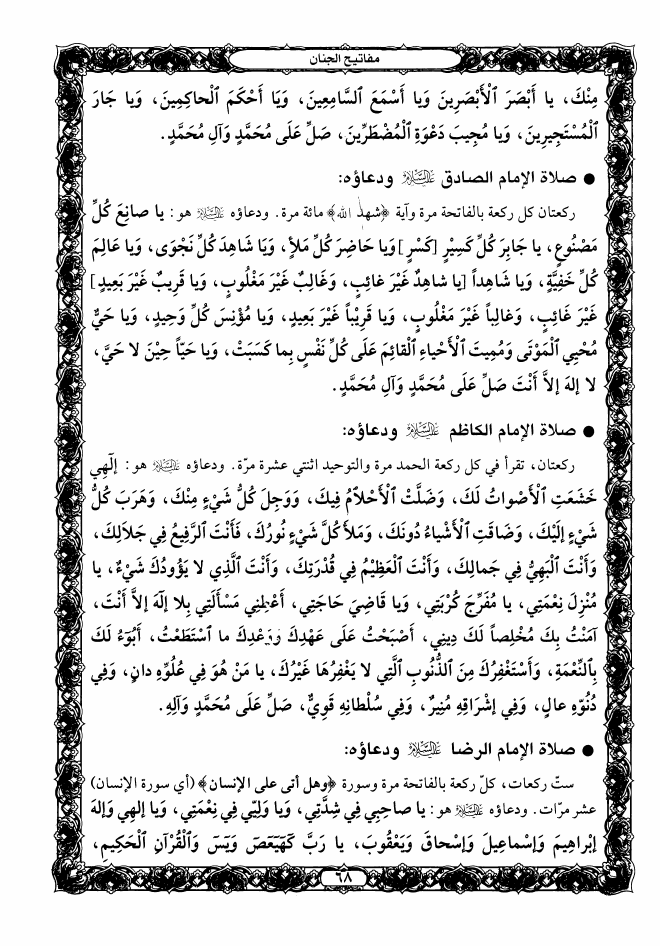 مفاتيح الجنان
مِنْكَ، يا أَبْصَرَ الْأَبْصَرِينَ وَيا أَسْمَعَ السَّامِعِينَ، وَيَا أَحْكَمَ الْحاكِمِينَ، وَيا جَارَ
الْمُسْتَجِيرِينَ، وَيا مُجِيبَ دَعْوَةِ الْمُضْطَرِّينَ، صَلِّ عَلَى مُحَمَّدٍ وَآلِ مُحَمَّدٍ.
● صلاة الإمام الصادق عليه السلام ودعاؤه:
ركعتان كل ركعة بالفاتحة مرة وآية ﴿شهد الله﴾ مائة مرة. ودعاؤه عليه السلام هو: يا صانِعَ كُلِّ
مَصْنُوعٍ، يا جَابِرَ كُلِّ كَسِيْرٍ [كَسْرٍ] وَيا حَاضِرَ كُلِّ مَلأٍ، وَيَا شَاهِدَ كُلِّ نَجْوَى، وَيا عَالِمَ
كُلِّ خَفِيَّةٍ، وَيا شَاهِداً [يا شاهِدٌ غَيْرَ غائِبٍ، وَغَالِبٌ غَيْرَ مَغْلُوبٍ، وَيا قَرِيبٌ غَيْرَ بَعِيدٍ]
غَيْرَ غَائِبٍ، وَغالِباً غَيْرَ مَغْلُوبٍ، وَيا قَرِيْباً غَيْرَ بَعِيدٍ، وَيا مُؤْنِسَ كُلِّ وَحِيدٍ، وَيا حَيُّ
مُحْيِي الْمَوْتَى وَمُمِيتَ الْأَحْياءِ الْقائِمَ عَلَى كُلِّ نَفْسٍ بِما كَسَبَتْ، وَيا حَيّاً حِيْنَ لا حَيَّ،
لا إلهَ إلاَّ أَنْتَ صَلِّ عَلَى مُحَمَّدٍ وَآلِ مُحَمَّدٍ.
● صلاة الإمام الكاظم عليه السلام ودعاؤه:
ركعتان، تقرأ في كل ركعة الحمد مرة والتوحيد اثنتي عشرة مرّة. ودعاؤه عليه السلام هو: إلٰهِي
خَشَعَتِ الْأَصْواتُ لَكَ، وَضَلَّتْ الْأَحْلاَمُ فِيكَ، وَوَجِلَ كُلُّ شَيْءٍ مِنْكَ، وَهَرَبَ كُلُّ
شَيْءٍ إلَيْكَ، وَضَاقَتِ الْأَشْياءُ دُونَكَ، وَمَلأَ كُلَّ شَيْءٍ نُورُكَ، فَأَنْتَ الرَّفِيعُ فِي جَلاَلِكَ،
وَأَنْتَ الْبَهِيُّ فِي جَمالِكَ، وَأَنْتَ الْعَظِيْمُ فِي قُدْرَتِكَ، وَأَنْتَ الَّذِي لا يَؤُودُكَ شَيْءٌ، يا
مُنْزِلَ نِعْمَتِي، يا مُفَرِّجَ كُرْبَتِي، وَيا قَاضِيَ حَاجَتِي، أَعْطِنِي مَسْأَلَتِي بِلا إلٰهَ إلاَّ أَنْتَ،
آمَنْتُ بِكَ مُخْلِصاً لَكَ دِينِي، أَصْبَحْتُ عَلَى عَهْدِكَ وَوَعْدِكَ ما اسْتَطَعْتُ، أَبُوْءُ لَكَ
بِالنِّعْمَةِ، وَأَسْتَغْفِرُكَ مِنَ الذُّنُوبِ الَّتِي لا يَغْفِرُهَا غَيْرُكَ، يا مَنْ هُوَ فِي عُلُوِّهِ دانٍ، وَفِي
دُنُوِّهِ عالٍ، وَفِي إشْراقِهِ مُنِيرٌ، وَفِي سُلْطانِهِ قَوِيٌّ، صَلِّ عَلَى مُحَمَّدٍ وَآلِهِ.
● صلاة الإمام الرضا عليه السلام ودعاؤه:
ستّ ركعات، كلّ ركعة بالفاتحة مرة وسورة ﴿وهل أتى على الإنسان﴾ (أي سورة الإنسان)
عشر مرّات. ودعاؤه عليه السلام هو: يا صاحِبِي فِي شِدَّتِي، وَيا وَلِيّي فِي نِعْمَتِي، وَيا إلهِي وَإلهَ
إبْراهِيمَ وَإسْماعِيلَ وَإسْحاقَ وَيَعْقُوبَ، يا رَبَّ كٓهٰيٰعٓصٓ وَيٰسٓ وَالْقُرْآنِ الْحَكِيمِ،
٦٨